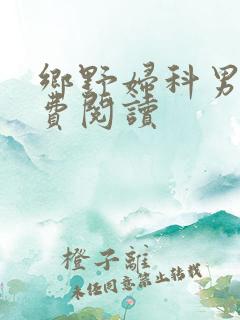 鄉野婦科男
費閱讀
橙子離
未任同意禁止转载